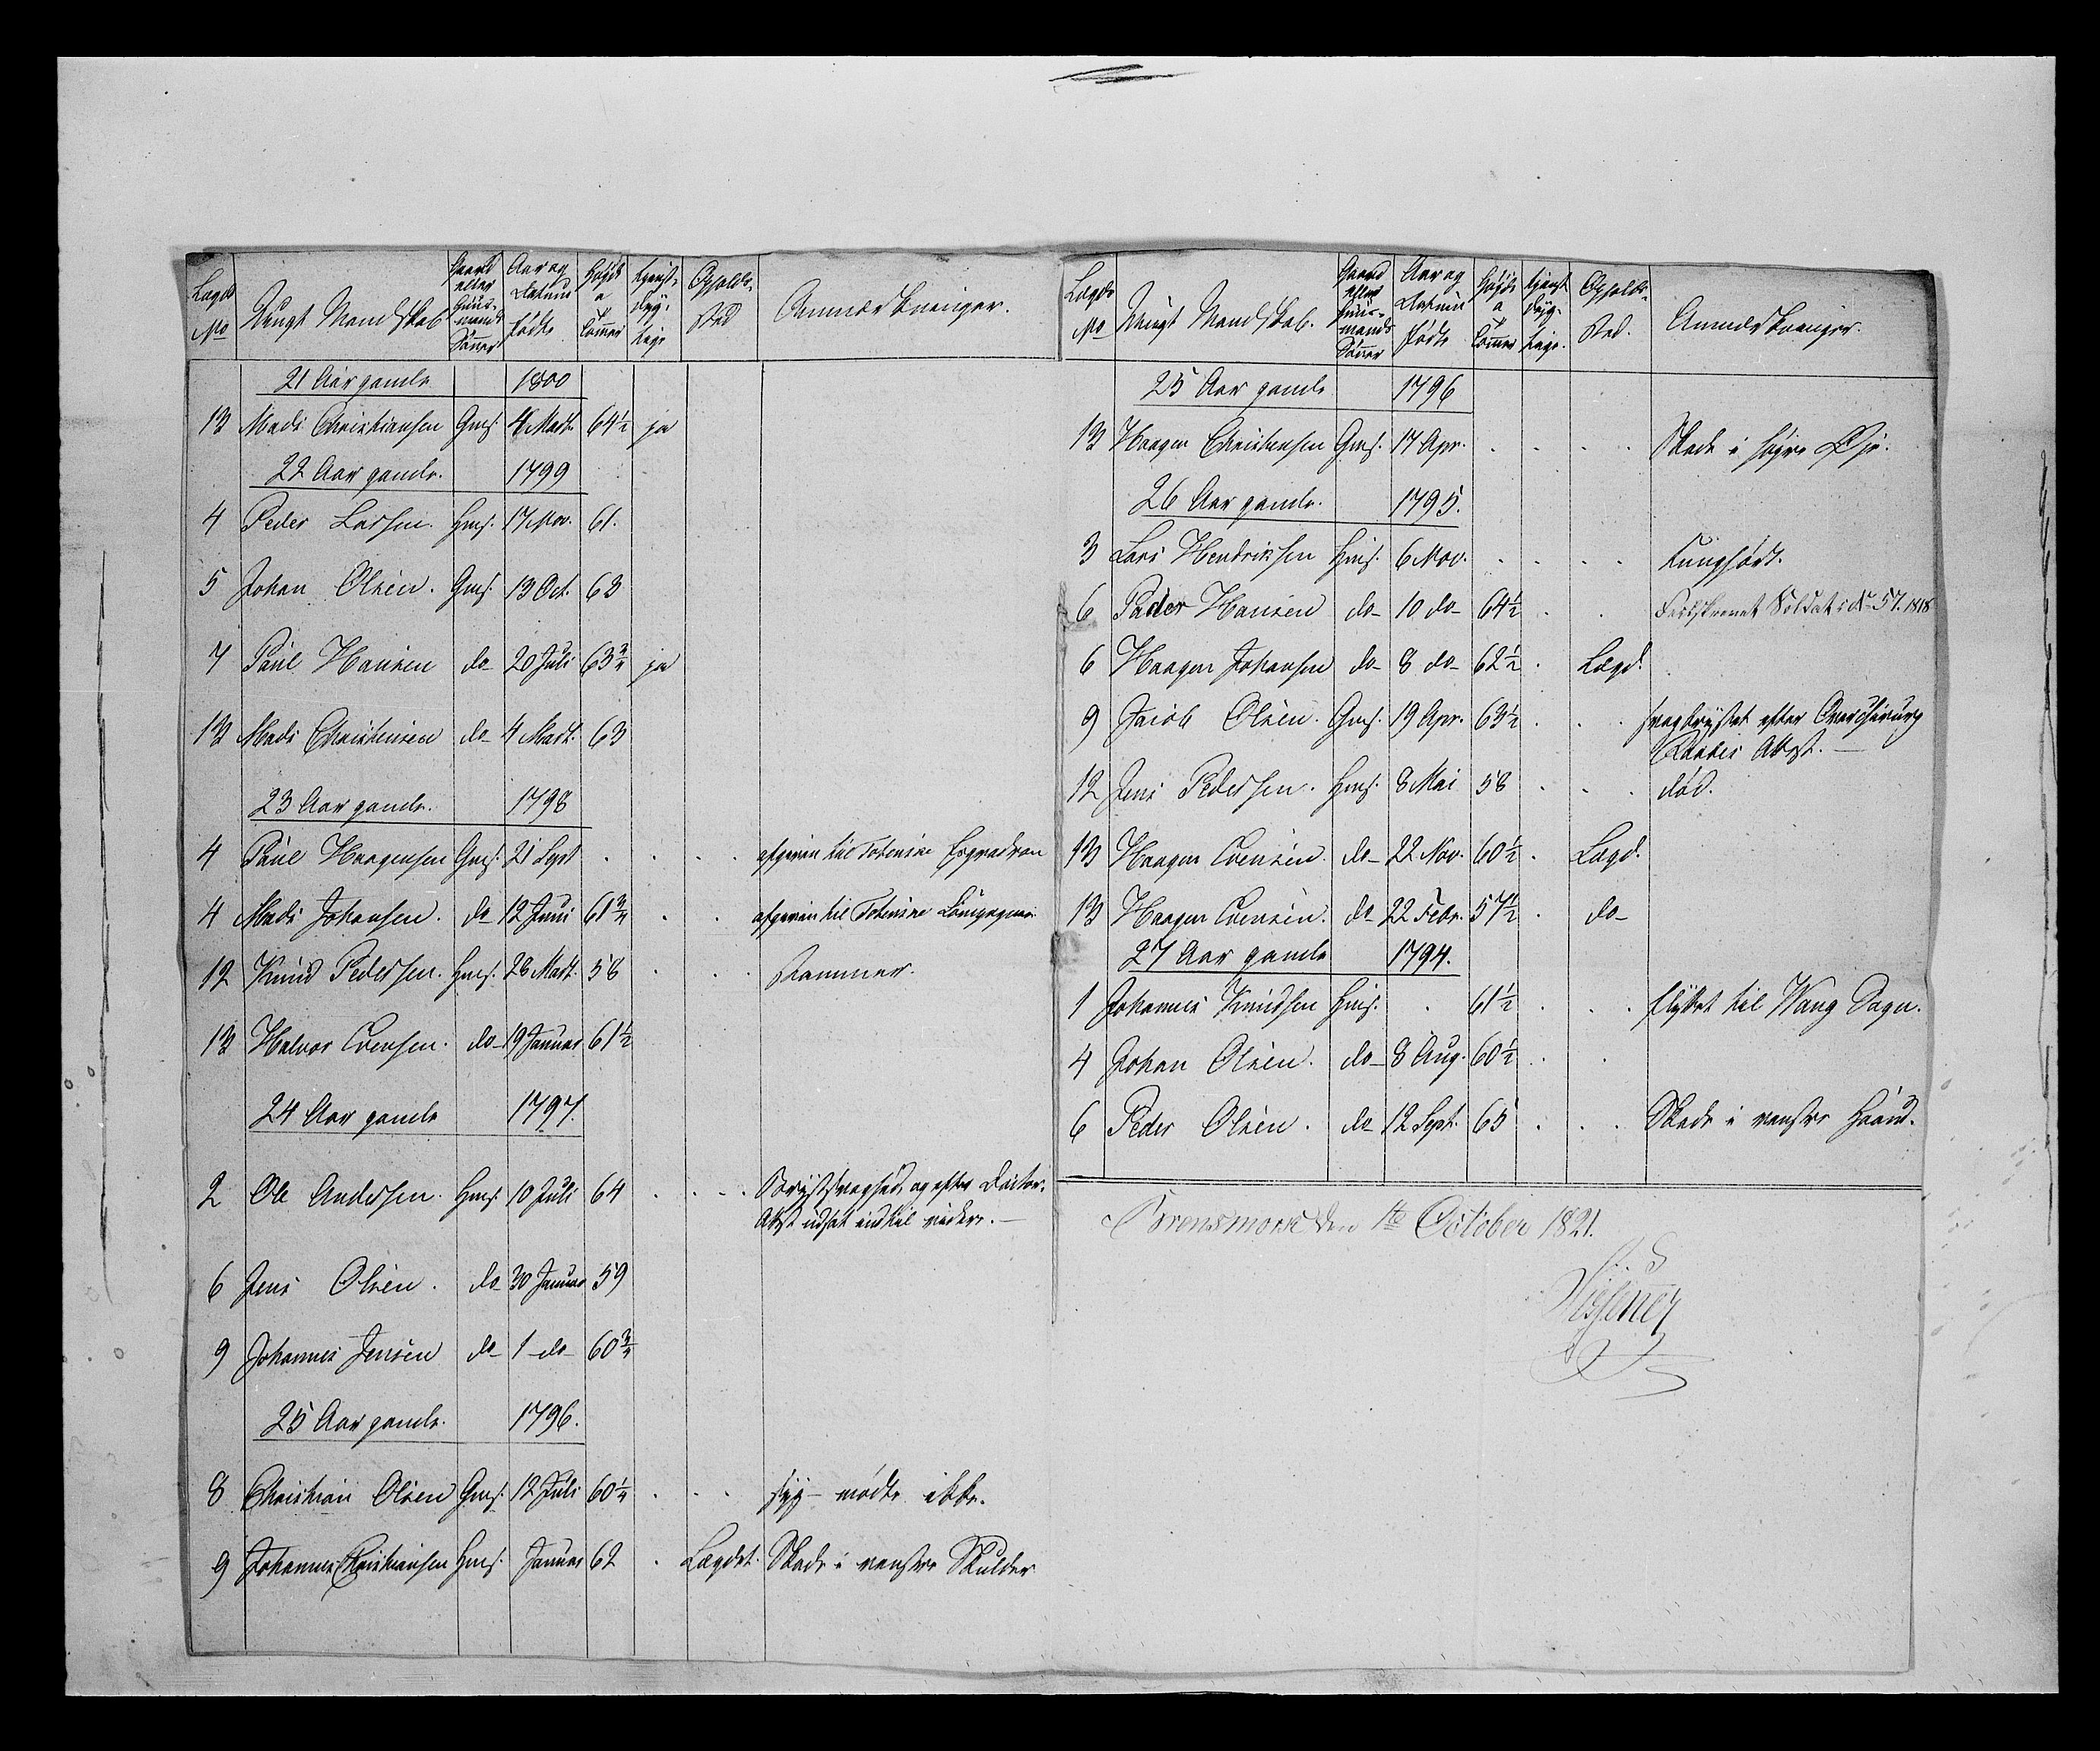 Lægds No | Ungt Mandskab | Gaard eller Huusmands Sönner | Aar og Datum födte | Höyde a Tommer | tjenstdygtige | Opholds Sted | Anmærkninger.
21 Aar gamle 1800
13 Mads Christiansen Gms. 4 Mart. 64½ ja
22 Aar gamle. 1799
4 Peder Larsen. Hms. 17 Nov. 61.
5 Johan Olsen. Gms. 13 Oct. 63
7 Paul Hansen do 20 Juli 63¾ ja
13 Mads Christensen do 4 Mart. 63
23 Aar gamle. 1798
4 Paul Haagensen Gms. 21 Sept
afgiven til Totenske Esqvadron
4 Mads Johansen. do 12 Juni 61¾
afgiven til Totenske Compagnie
12 Knud Pedersen. Hms. 28 Mart. 58 stammer.
13 Halvor Evensen. do 19 Januar 61½
24 Aar gamle 1797.
2 Ole Andersen. Hms. 10 Juli 64 Brystsvaghed, og efter Doctor.
Attst udsat indtil videre.
6 Jens Olsen. do 30 Januar 59
9 Johannes Jensen do 1 do 60¾
25 Aar gamle. 1796.
8 Christian Olsen Gms. 12 Juli 60¼ syg mödte ikke.
9 Johannes Christiansen Hms. Januar 62 Lægdet. Skade i venstre Skulder
Lægds No | Ungt Mandskab. | Gaard eller Huusmands Sönner | Aar og Datum födte | Höyde a Tommer | tjenstdygtige. | Opholds Sted. | Anmærkninger.
25 Aar gamle 1796
13 Haagen Christensen Gms. 17 Apr. Skade i höyre Øje.
26 Aar gamle. 1795.
3 Lars Hendriksen Hms. 6 Nov. Tunghört.
6 Peder Hansen do 10 do 64½ Soldat No 57. 1818
6 Haagen Johansen do 8 do 62½ Lægd.
9 Jacob Olsen. Gms. 19 Apr. 63½ svagbrystet efter Overchirurg
Attst.
12 Jens Pedersen. Hms. 8 Mai 58 död.
13 Haagen Evensen. do 22 Nov. 60½ Lægd.
13 Haagen Evensen. do 22 Febr. 57½ do
27 Aar gamle 1794.
1 Johannes Knudsen Hms. 61½ flyttet til Wang Sogn.
4 Johan Olsen. do 8 Aug. 60½
6 Peder Olsen. do 12 Sept. 65 Skade i venstre Haand.
den 1te October 1821.